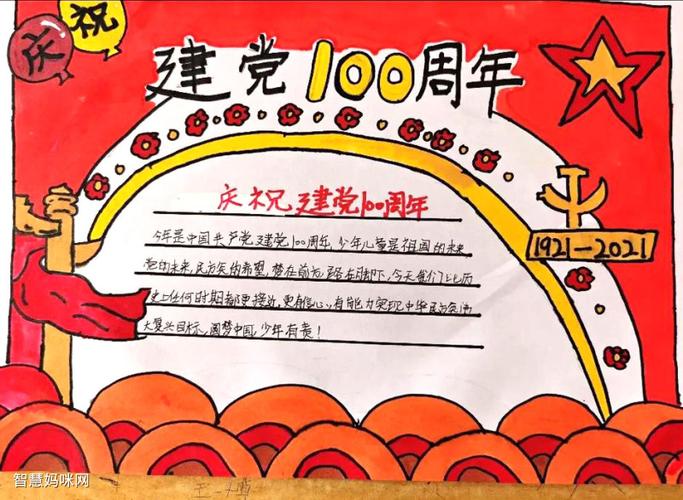 庆祝
建党100周年
庆祝建党100周年
今年是中国共产党建党100周年,少年儿童是祖国的未来
党的未来,民族的希望,梦在前方,路在脚下,今天我们比历
史上任何时期都更接近,更有信心,有能力实现中华民族伟
大复兴目标,圆梦中国,少年有责!
1921—2021
智慧妈咪网